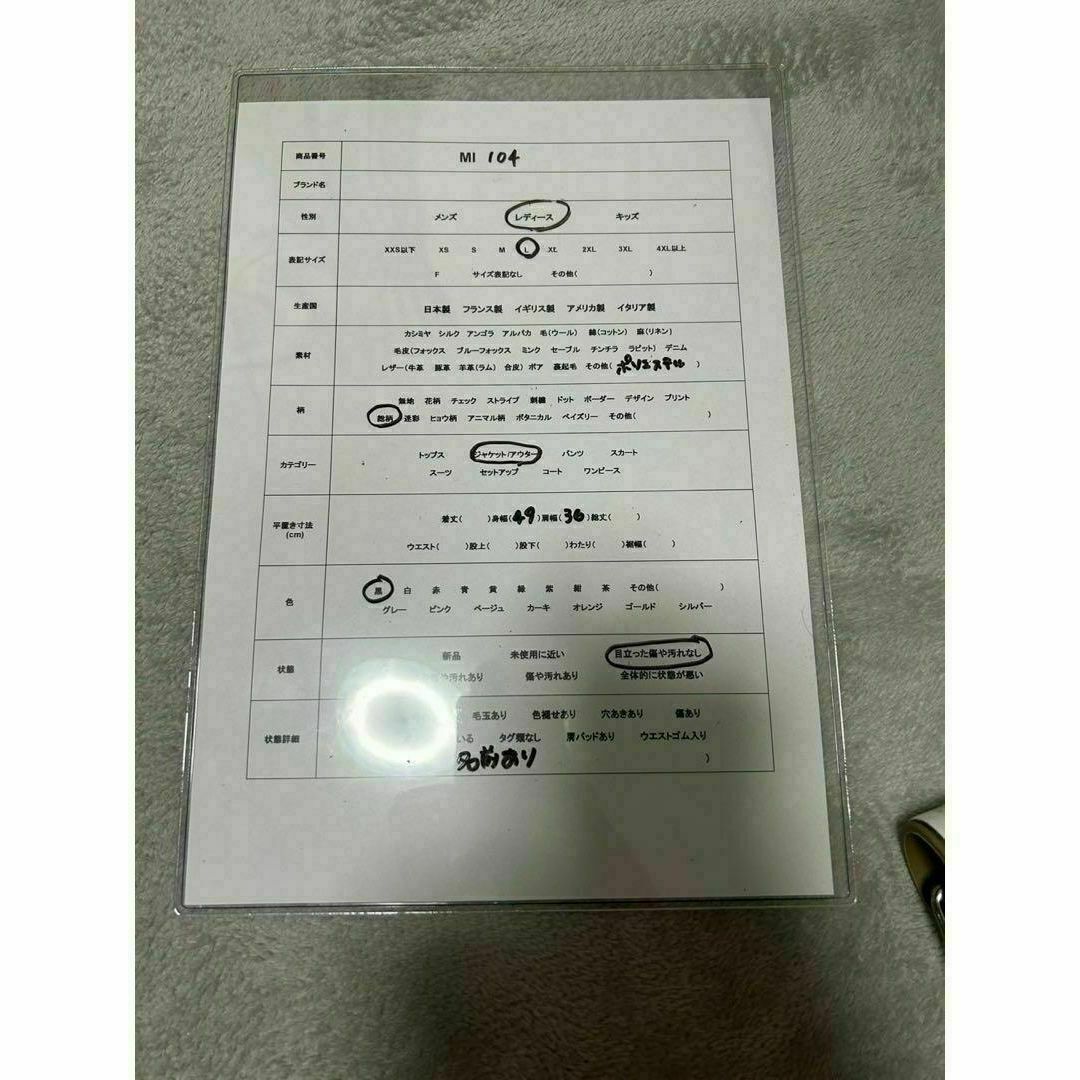 商品番号 MI 104
ブランド名
性別 メンズ レディース キッズ
XXS以下 XS S M L XL 2XL 3XL 4XL以上
表記サイズ
F サイズ表記なし その他( )
生産国 日本製 フランス製 イギリス製 アメリカ製 イタリア製
カシミヤ シルク アンゴラ アルパカ 毛(ウール) 綿(コットン) 麻(リネン)
素材 毛皮(フォックス ブルーフォックス ミンク セーブル チンチラ ラビット) デニム
レザー(牛革 豚革 羊革(ラム) 合皮) ボア 裏起毛 その他( ポリエステル )
無地 花柄 チェック ストライプ 刺繍 ドット ボーダー デザイン プリント
柄
総柄 迷彩 ヒョウ柄 アニマル柄 ボタニカル ペイズリー その他( )
トップス ジャケット/アウター パンツ スカート
カテゴリー
スーツ セットアップ コート ワンピース
着丈( )身幅( 49 )肩幅( 36 )総丈( )
平置き寸法
(cm)
ウエスト( )股上( )股下( )わたり( )裾幅( )
黒 白 赤 青 黄 緑 紫 紺 茶 その他( )
色
グレー ピンク ベージュ カーキ オレンジ ゴールド シルバー
新品 未使用に近い 目立った傷や汚れなし
状態
や汚れあり 傷や汚れあり 全体的に状態が悪い
毛玉あり 色褪せあり 穴あきあり 傷あり
状態詳細 いる タグ類なし 肩パッドあり ウエストゴム入り
名前あり )